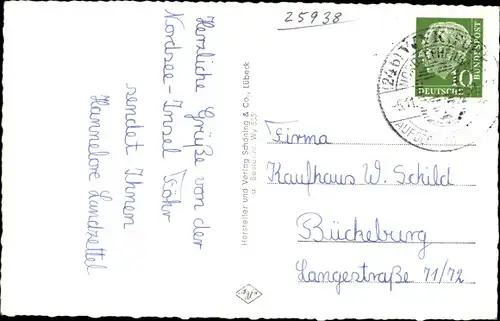 25938
Herzliche Grüße von der
Nordsee-Insel Föhr
sendet Ihnen
Hannelore Landzettel
Hersteller und Verlag Schöning & Co., Lübeck
(24b)
10
DEUTSCHE
BUNDESPOST
Firma
Kaufhaus W. Schild
Bückeburg
Langestraße 71/72